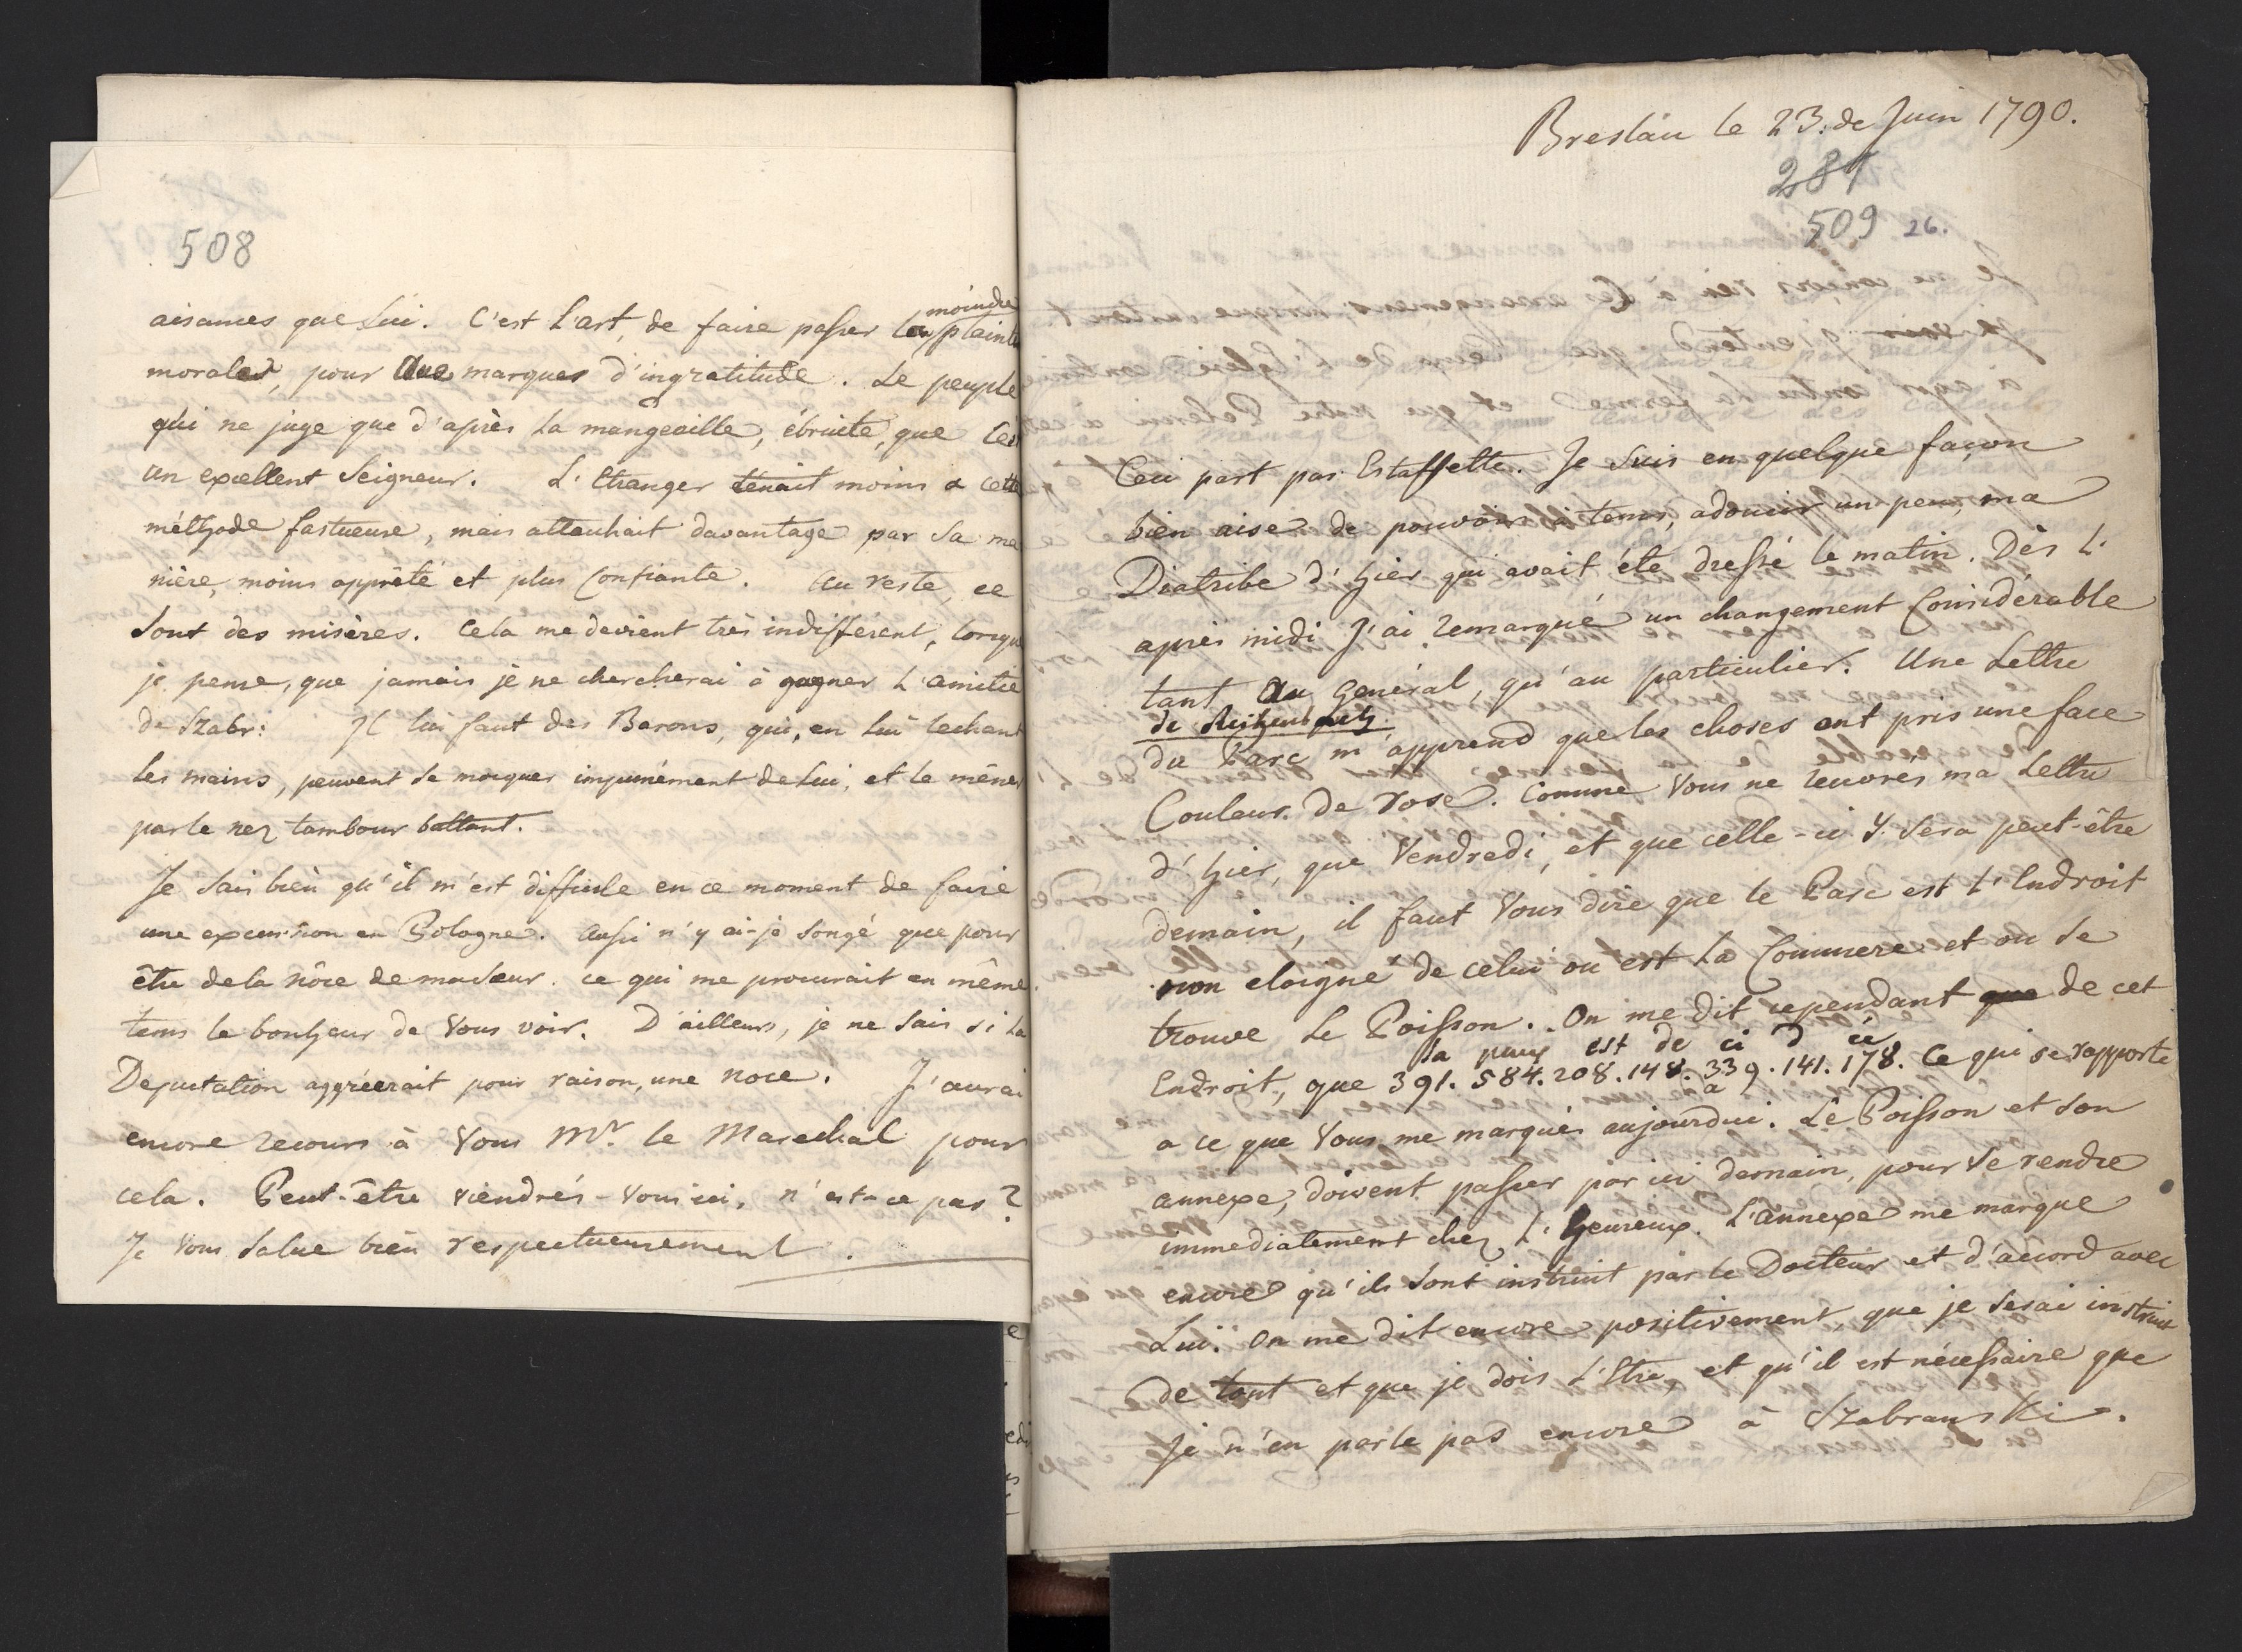 508
aisances que Lui. C'est L'art, de faire passer la moindre plainte
morale, pour une marque d'ingratitude. Le peuple
qui ne juge que d'après la mangeaille, ébruite, que C'est
un excellent Seigneur. L'Etranger tenait moins a cette
méthode fastueuse, mais attachait davantage par sa ma
nière, moins apprêté et plus Confiante. Au reste, ce
Sont des misères. Cela me devient très indifférent, lorsque
je pense, que jamais je ne chercherai à gagner L'amitie
de Szabr: Il lui faut des Barons, qui, en Lui lechant
les mains, peuvent se moquer impunément de Lui, et le mêner
par le nez tambour battant.
Je Sais bien qu'il m'est difficile en ce moment de faire
une excursion en Pologne. Aussi n'y ai-je songé que pour
être de la nôce de ma Soeur. Ce qui me procurait en même
tems le bonheur de Vous voir. D'ailleurs, je ne Sais si la
Deputation aggréerait pour raison, une noce. J'aurai
encore recours à Vous Mr. le Marechal pour
cela. Peut-être viendrés-Vous ici, n'est-ce pas?
Je Vous Salue bien respectueusement.
Breslau le 23. de Juin 1790.
281
509 26.
Ceci part par Estaffette. Je Suis en quelque façon
bien aise de pouvoir à tems, adoucir un peu, ma
Diatribe d'hier qui avait été dressé le matin. Dès L'
après midi J'ai remarqué un changement Considérable
tant au General, qu'au particulier. Une Lettre
de Reichenbach
du Parc m'apprend que les choses ont pris une face
Couleur de rose. Comme Vous ne recevrés ma Lettre
d'hier, que Vendredi, et que celle-ci Y. sera peut-être
demain, il faut Vous dire que le Parc est L'Endroit
non eloigné de celui ou est la Commere et ou se
trouve Le Poisson. On me dit cependant que de cet
la paix est de ci d ée
Endroit, que 391. 584. 208. 148. 339. 141. 178. Ce qui se rapporte
a
a ce que Vous me marqués aujourdui. Le Poisson et son
annexe, doivent passer par ici demain, pour se rendre
immediatement chez L'heureux. L'annexe me marque
encore qu'ils sont instruit par le Docteur et d'accord avec
Lui. On me dit encore positivement, que je serai instruit
de tout et que je dois L'Etre, et qu'il est nécessaire que
je n'en parle pas encore à Szabranski.